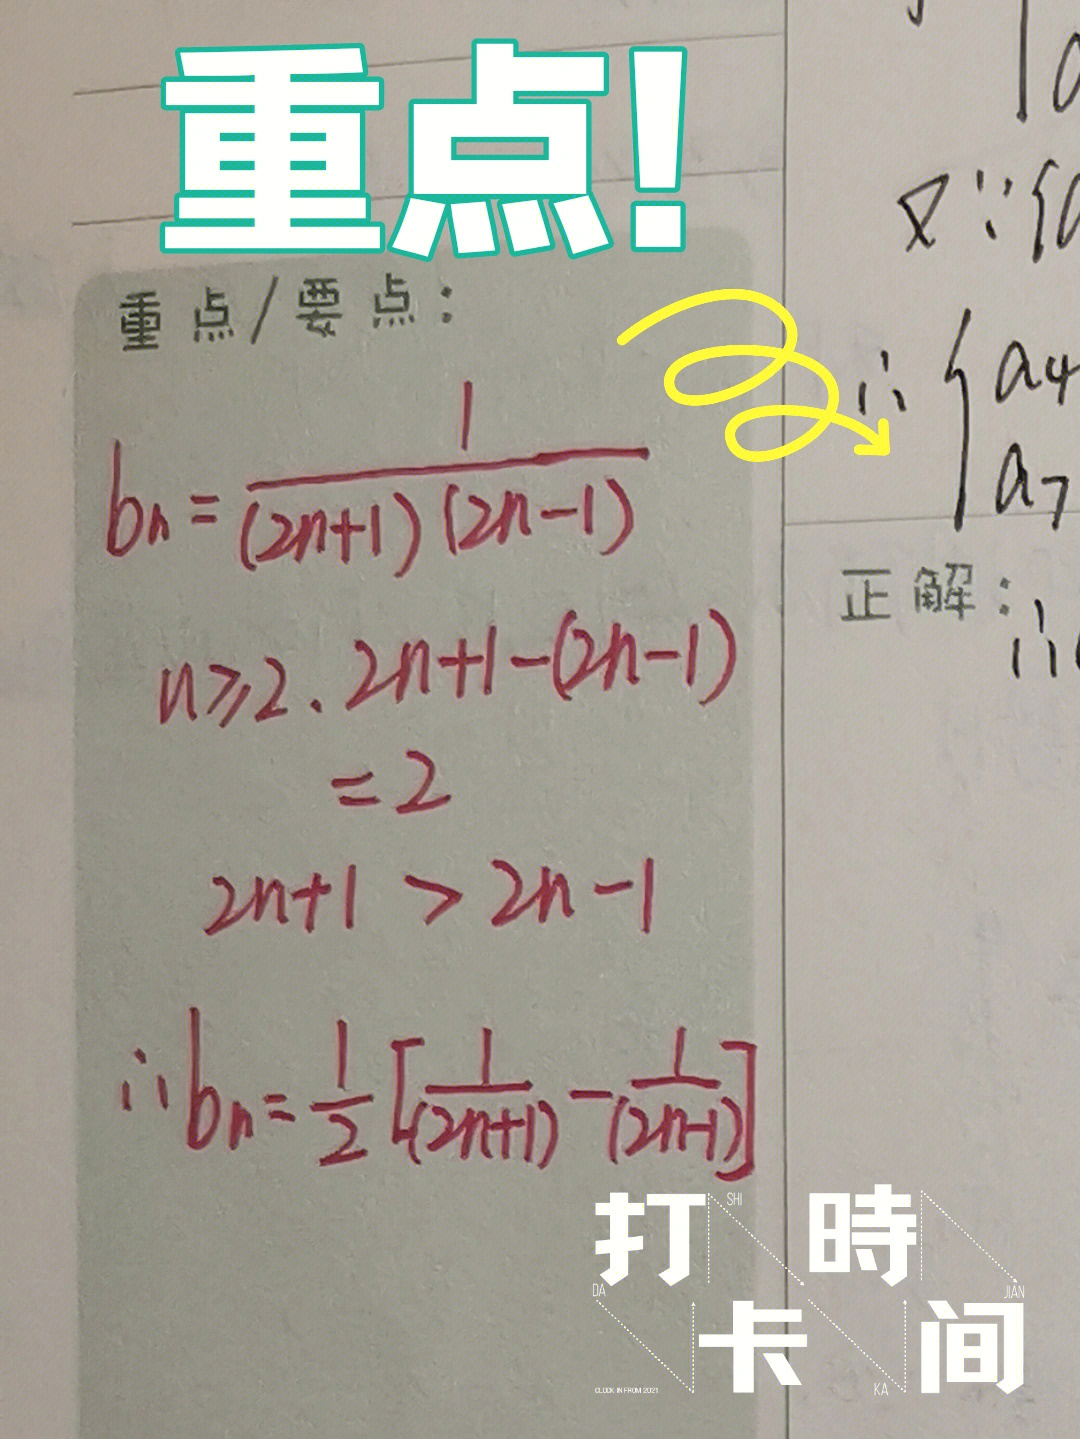 重点!
重点/要点:
bn = 1/((2n+1)(2n-1))
n≥2. 2n+1-(2n-1)
=2
2n+1 > 2n-1
∴bn = 1/2 [1/(2n+1) - 1/(2n-1)]
又∵{a
∴{a4
a7
正解:
∴
打時
卡间
SHI
DA
JIAN
KA
CLOCK IN FROM 2021